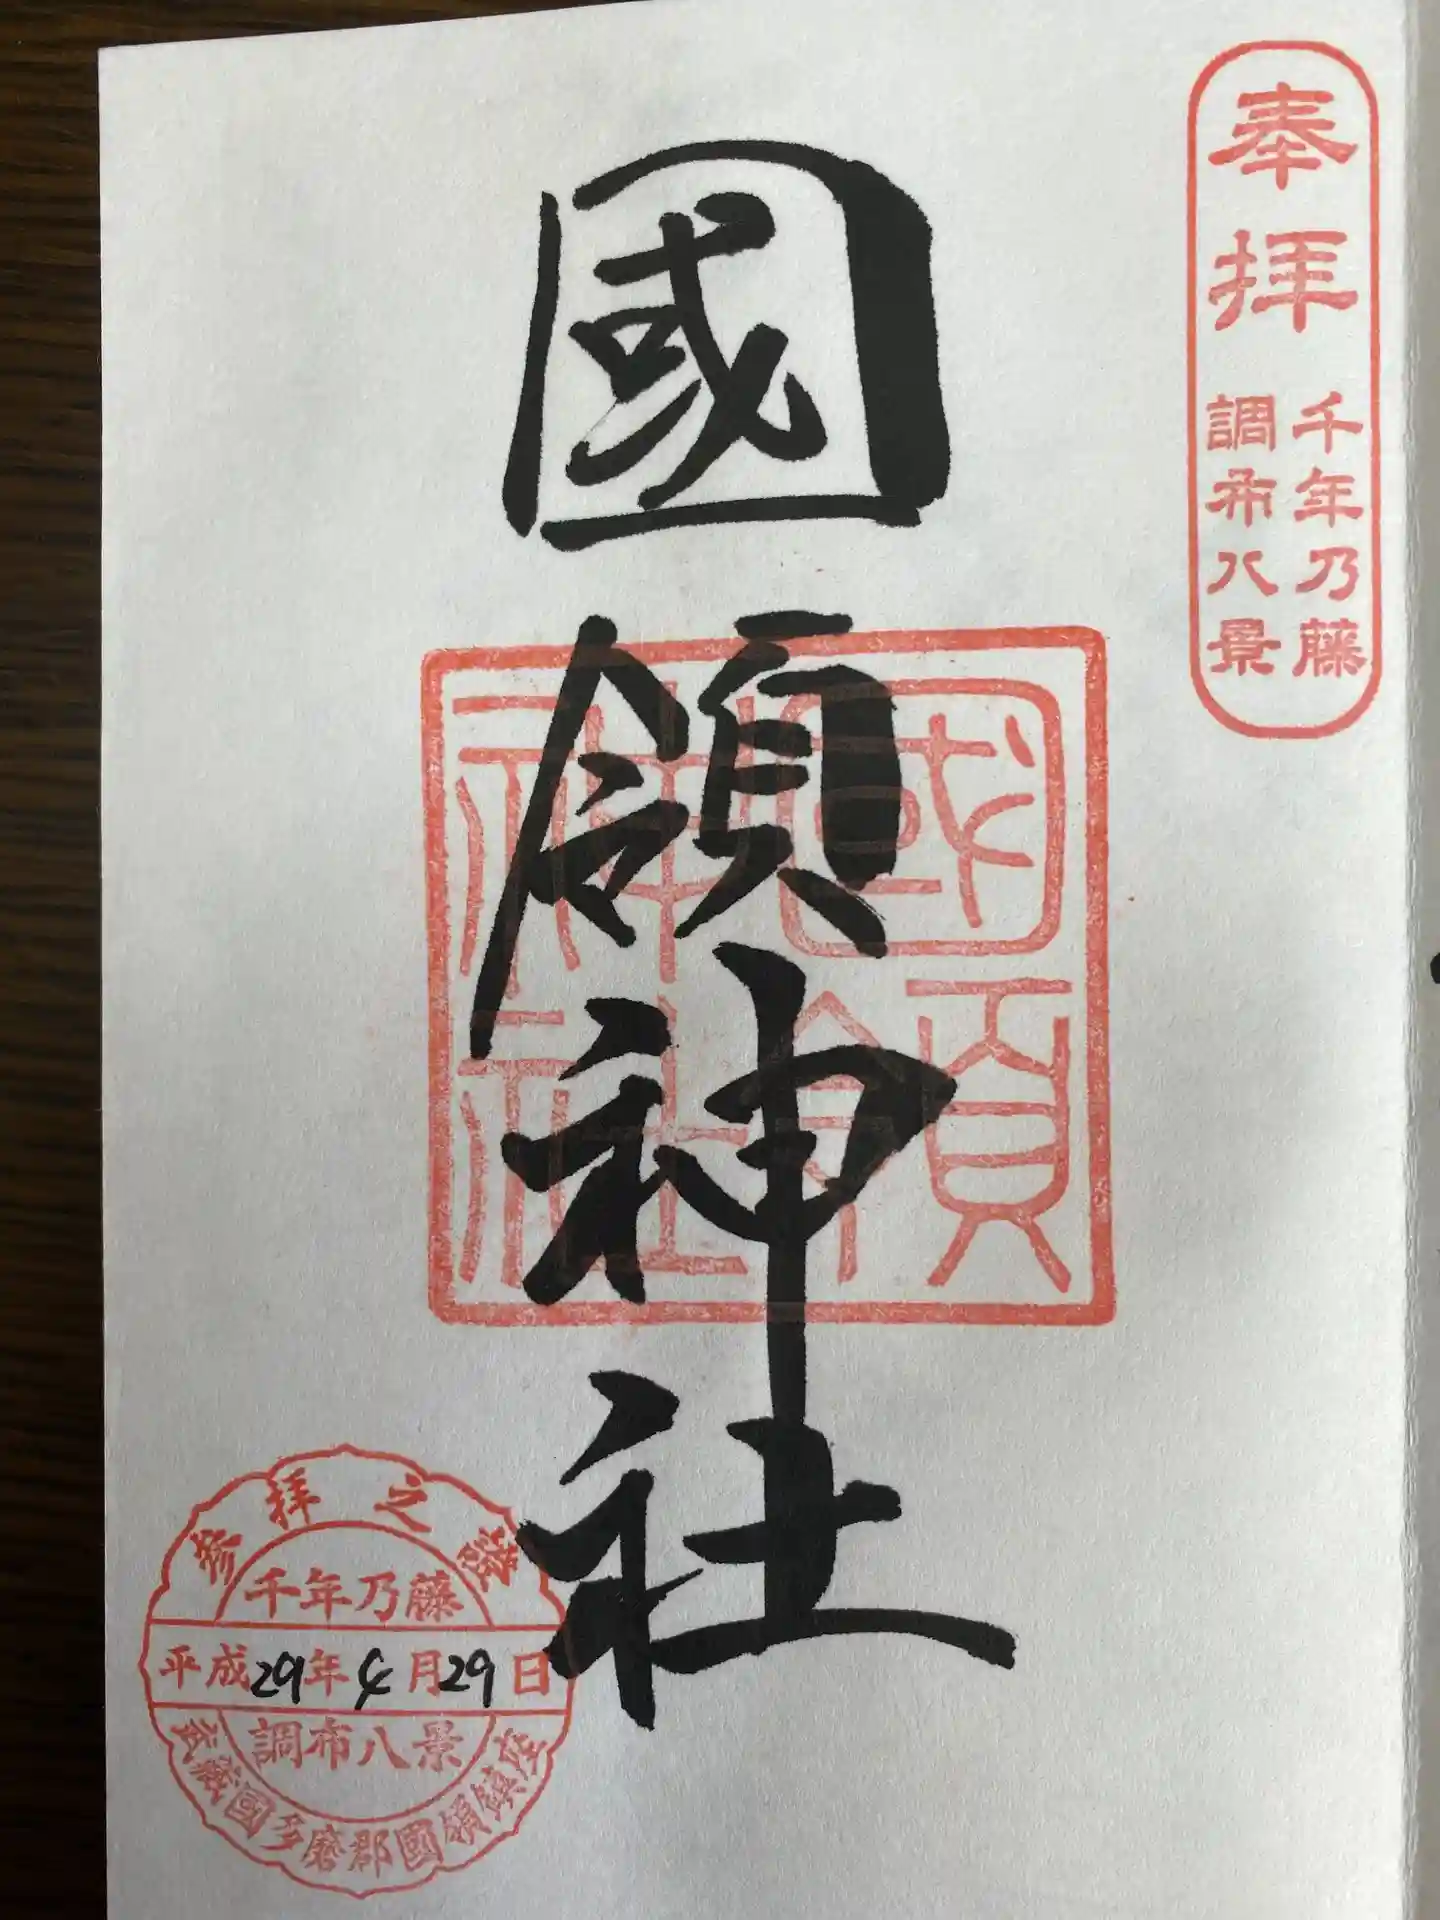 奉拝
千年乃藤
調布八景
國領神社
國領
神社
参拝之證
千年乃藤
平成29年4月29日
調布八景
武蔵國多磨郡國領鎮座